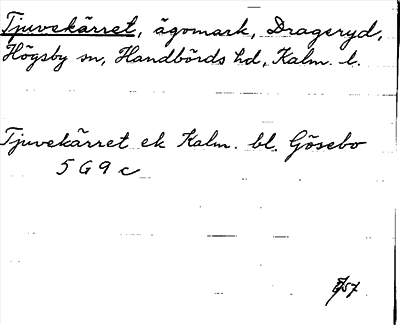 Tjuvekärret, ägomark, Drageryd,
Högsby sn, Handbörds hd, Kalm. l.
Tjuvekärret ek Kalm. bl. Gösebo
5 G 9 c